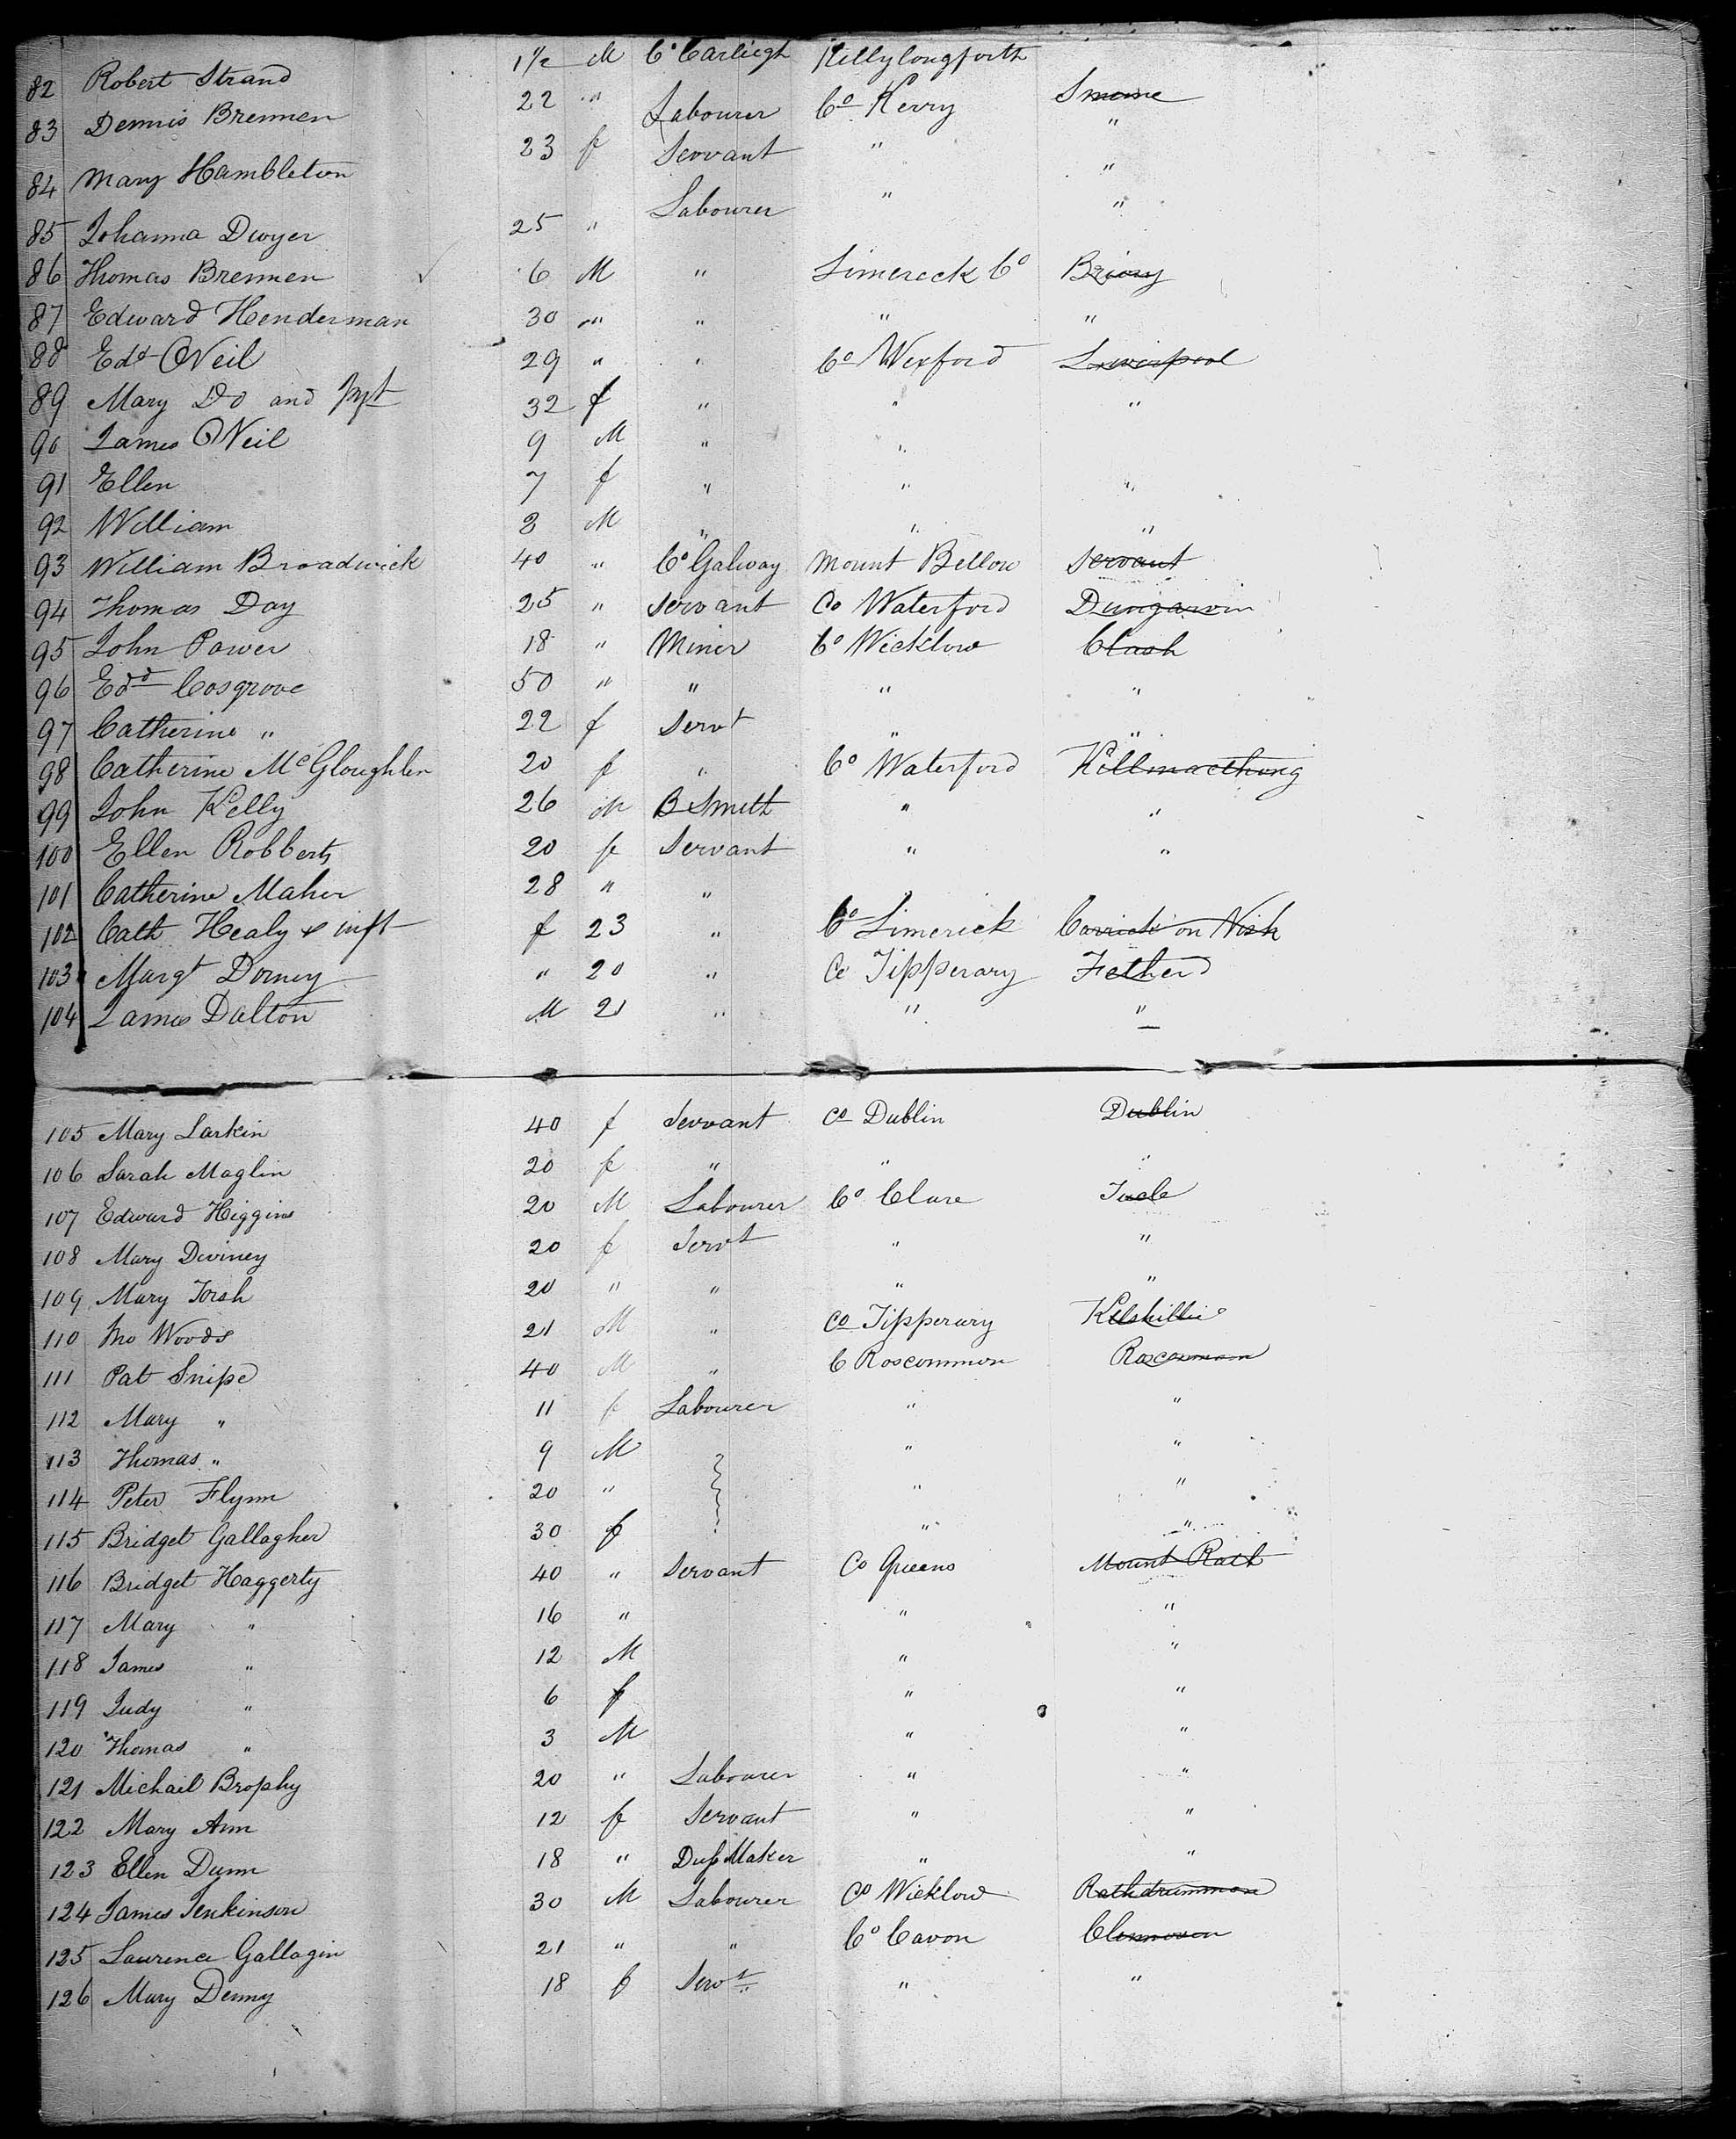 82 Robert Strand 1 1/2 M Co Carliegh Killylongforth
83 Dennis Brennen 22 " Labourer Co Kerry
84 Mary Hambleton 23 f Servant " "
85 Johanna Dwyer 25 " Labourer " "
86 Thomas Brennen 6 M " Limereck Co
87 Edward Henderman 30 " " " "
88 Edd ONeil 29 " " Co Wexford Liverpool
89 Mary Do and Inft 32 f " " "
90 James ONeil 9 M " "
91 Ellen 7 f " " "
92 William 3 M " " "
93 William Broadwick 40 " Co Galway Mount Bellow Servant
94 Thomas Day 25 " Servant Co Waterford Dungarvin
95 John Power 18 " Miner Co Wicklow Clash
96 Edd Cosgrove 50 " " " "
97 Catherine " 22 f Servt " "
98 Catherine McGloughlen 20 f " Co Waterford Killmacthong
99 John Kelly 26 M B Smith " "
100 Ellen Robberts 20 f Servant " "
101 Catherine Maher 28 " "
102 Cath Healy & inft f 23 " Co Limerick Carrick on
103 Margt Dorney " 20 " Co Tipperary Fetherd
104 James Dalton M 21 " " "
105 Mary Larkin 40 f Servant Co Dublin Dublin
106 Sarah Maglin 20 f " " "
107 Edward Higgins 20 M Labourer Co Clare
108 Mary Deviney 20 f Servt " "
109 Mary Torsh 20 " " " "
110 Jno Woods 21 M " Co Tipperary
111 Pat Snipe 40 M " C Roscommon Roscommon
112 Mary " 11 f Labourer " "
113 Thomas " 9 M " "
114 Peter Flynn 20 " " "
115 Bridget Gallagher 30 f " "
116 Bridget Haggerty 40 " Servant Co Queens Mount Rath
117 Mary " 16 " " "
118 James " 12 M " "
119 Judy " 6 f " "
120 Thomas " 3 M " "
121 Michail Brophy 20 " Labourer " "
122 Mary Ann 12 f Servant " "
123 Ellen Dunn 18 " Dress Maker " "
124 James Jenkinson 30 M Labourer Co Wicklow Rathdrummon
125 Laurence Gallagin 21 " " Co Cavon
126 Mary Denny 18 f Servt " "